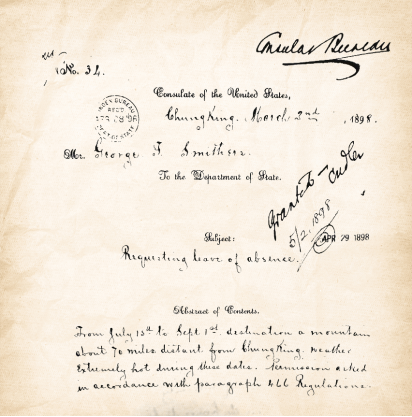 Consular Bureau
No. 34.
Consulate of the United States,
ChungKing. March 2nd, 1898.
INDEX BUREAU
REC'D
APR 28 98
DEP'T OF STATE
Mr. George F. Smithers.
To the Department of State.
granted
5/2, 1898
APR 29 1898
Subject:
Requesting leave of absence.
Abstract of Contents.
From July 15th to Sept 1st destination a mountain
about 70 miles distant from ChungKing. weather
Extremely hot during these dates. Permission asked
in accordance with paragraph 466 Regulations.